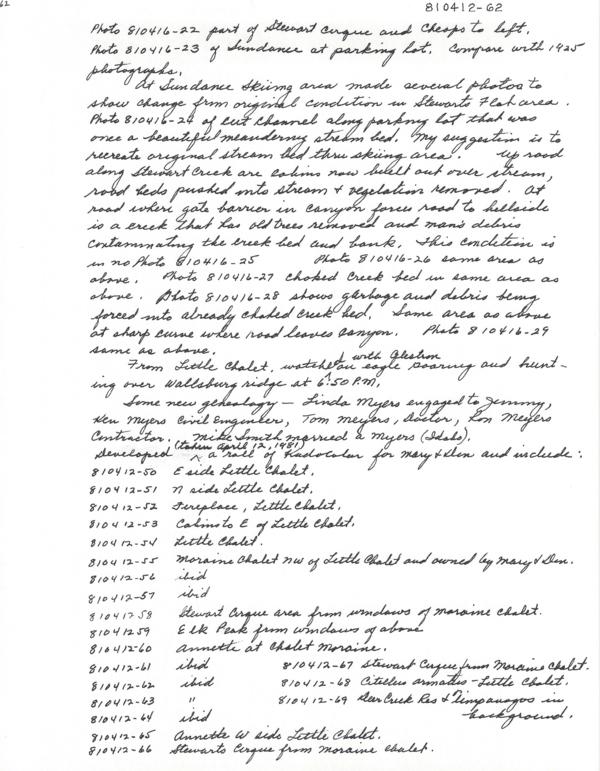 62
810412-62
Photo 810416-22 part of Stewart Cirque and Cheops to left.
Photo 810416-23 of Sundance at parking lot. Compare with 1925
photographs.
At Sundance Skiing area made several photos to
show change from original condition in Stewarts Flat area.
Photo 810416-24 of cut channel along parking lot that was
once a beautiful meandering stream bed. My suggestion is to
recreate original stream bed thru skiing area. Up road
along Stewart Creek are cabins now built out over stream,
road beds pushed into stream & vegetation removed. At
road where gate barrier in canyon forces road to hillside
is a creek that has old trees removed and man's debris
contaminating the creek bed and bank. This condition is
in no Photo 810416-25 Photo 810416-26 same area as
above. Photo 810416-27 choked creek bed in same area as
above. Photo 810416-28 shows garbage and debris being
forced into already choked creek bed. Same area as above
at sharp curve where road leaves canyon. Photo 810416-29
same as above.
From Little Chalet, watched with Celestron an eagle soaring and hunt-
ing over Wallsburg ridge at 6:50 P.M.
Some new genealogy - Linda Myers engaged to Jemmy,
Ken Myers Civil Engineer, Tom Meyers, Doctor, Ron Meyers
Contractor. Mike Smith married a Myers (Idaho).
Developed (taken April 12, 1981) a roll of Kodacolor for Mary & Den and include:
810412-50 E side Little Chalet.
810412-51 N side Little Chalet.
810412-52 Fireplace, Little Chalet.
810412-53 Cabins to E of Little Chalet.
810412-54 Little Chalet.
810412-55 Moraine Chalet NW of Little Chalet and owned by Mary & Den.
810412-56 ibid
810412-57 ibid
810412-58 Stewart Cirque area from windows of moraine chalet.
810412-59 Elk Peak from windows of above
810412-60 Annette at Chalet Moraine.
810412-61 ibid 810412-67 Stewart Cirque from Moraine Chalet.
810412-62 ibid 810412-68 Citellus armatus - Little Chalet.
810412-63 " 810412-69 Deer Creek Res & Timpanogos in
810412-64 ibid background.
810412-65 Annette W side Little Chalet.
810412-66 Stewarts Cirque from moraine chalet.